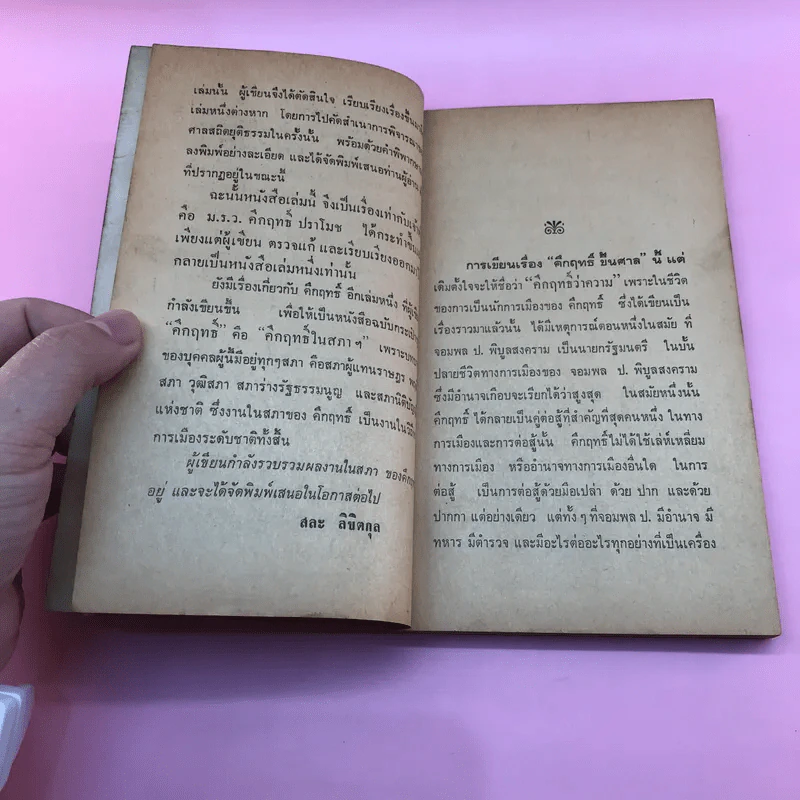 เล่มนั้น ผู้เขียนจึงได้ตัดสินใจ เรียบเรียงเรื่องขึ้นมา
เล่มหนึ่งต่างหาก โดยการไปคัดสำเนาการพิจารณา
ศาลสถิตยุติธรรมในครั้งนั้น พร้อมด้วยคำพิพากษา
ลงพิมพ์อย่างละเอียด และได้จัดพิมพ์เสนอท่านผู้อ่าน
ที่ปรากฏอยู่ในขณะนี้
ฉะนั้นหนังสือเล่มนี้ จึงเป็นเรื่องเท่ากับ
คือ ม.ร.ว. คึกฤทธิ์ ปราโมช ได้กระทำขึ้น
เพียงแต่ผู้เขียน ตรวจแก้ และเรียบเรียงออกมา
กลายเป็นหนังสือเล่มหนึ่งเท่านั้น
ยังมีเรื่องเกี่ยวกับ คึกฤทธิ์ อีกเล่มหนึ่ง ที่
กำลังเขียนขึ้น เพื่อให้เป็นหนังสือฉบับกระเป๋า
“คึกฤทธิ์” คือ “คึกฤทธิ์ในสภาฯ” เพราะ
ของบุคคลผู้นี้มีอยู่ทุกๆสภา คือสภาผู้แทนราษฎร
สภา วุฒิสภา สภาร่างรัฐธรรมนูญ และสภานิติบัญ
แห่งชาติ ซึ่งงานในสภาของ คึกฤทธิ์ เป็นงานใน
การเมืองระดับชาติทั้งสิ้น
ผู้เขียนกำลังรวบรวมผลงานในสภา ของคึกฤ
อยู่ และจะได้จัดพิมพ์เสนอในโอกาสต่อไป
สละ ลิขิตกุล
การเขียนเรื่อง “คึกฤทธิ์ ขึ้นศาล” นี้ แต่
เดิมตั้งใจจะให้ชื่อว่า “คึกฤทธิ์ว่าความ” เพราะในชีวิต
ของการเป็นนักการเมืองของ คึกฤทธิ์ ซึ่งได้เขียนเป็น
เรื่องราวมาแล้วนั้น ได้มีเหตุการณ์ตอนหนึ่งในสมัย ที่
จอมพล ป. พิบูลสงคราม เป็นนายกรัฐมนตรี ในบั้น
ปลายชีวิตทางการเมืองของ จอมพล ป. พิบูลสงคราม
ซึ่งมีอำนาจเกือบจะเรียกได้ว่าสูงสุด ในสมัยหนึ่งนั้น
คึกฤทธิ์ ได้กลายเป็นคู่ต่อสู้ที่สำคัญที่สุดคนหนึ่ง ในทาง
การเมืองและการต่อสู้นั้น คึกฤทธิ์ไม่ได้ใช้เล่ห์เหลี่ยม
ทางการเมือง หรืออำนาจทางการเมืองอื่นใด ในการ
ต่อสู้ เป็นการต่อสู้ด้วยมือเปล่า ด้วย ปาก และด้วย
ปากกา แต่อย่างเดียว แต่ทั้ง ๆ ที่จอมพล ป. มีอำนาจ มี
ทหาร มีตำรวจ และมีอะไรต่ออะไรทุกอย่างที่เป็นเครื่อง